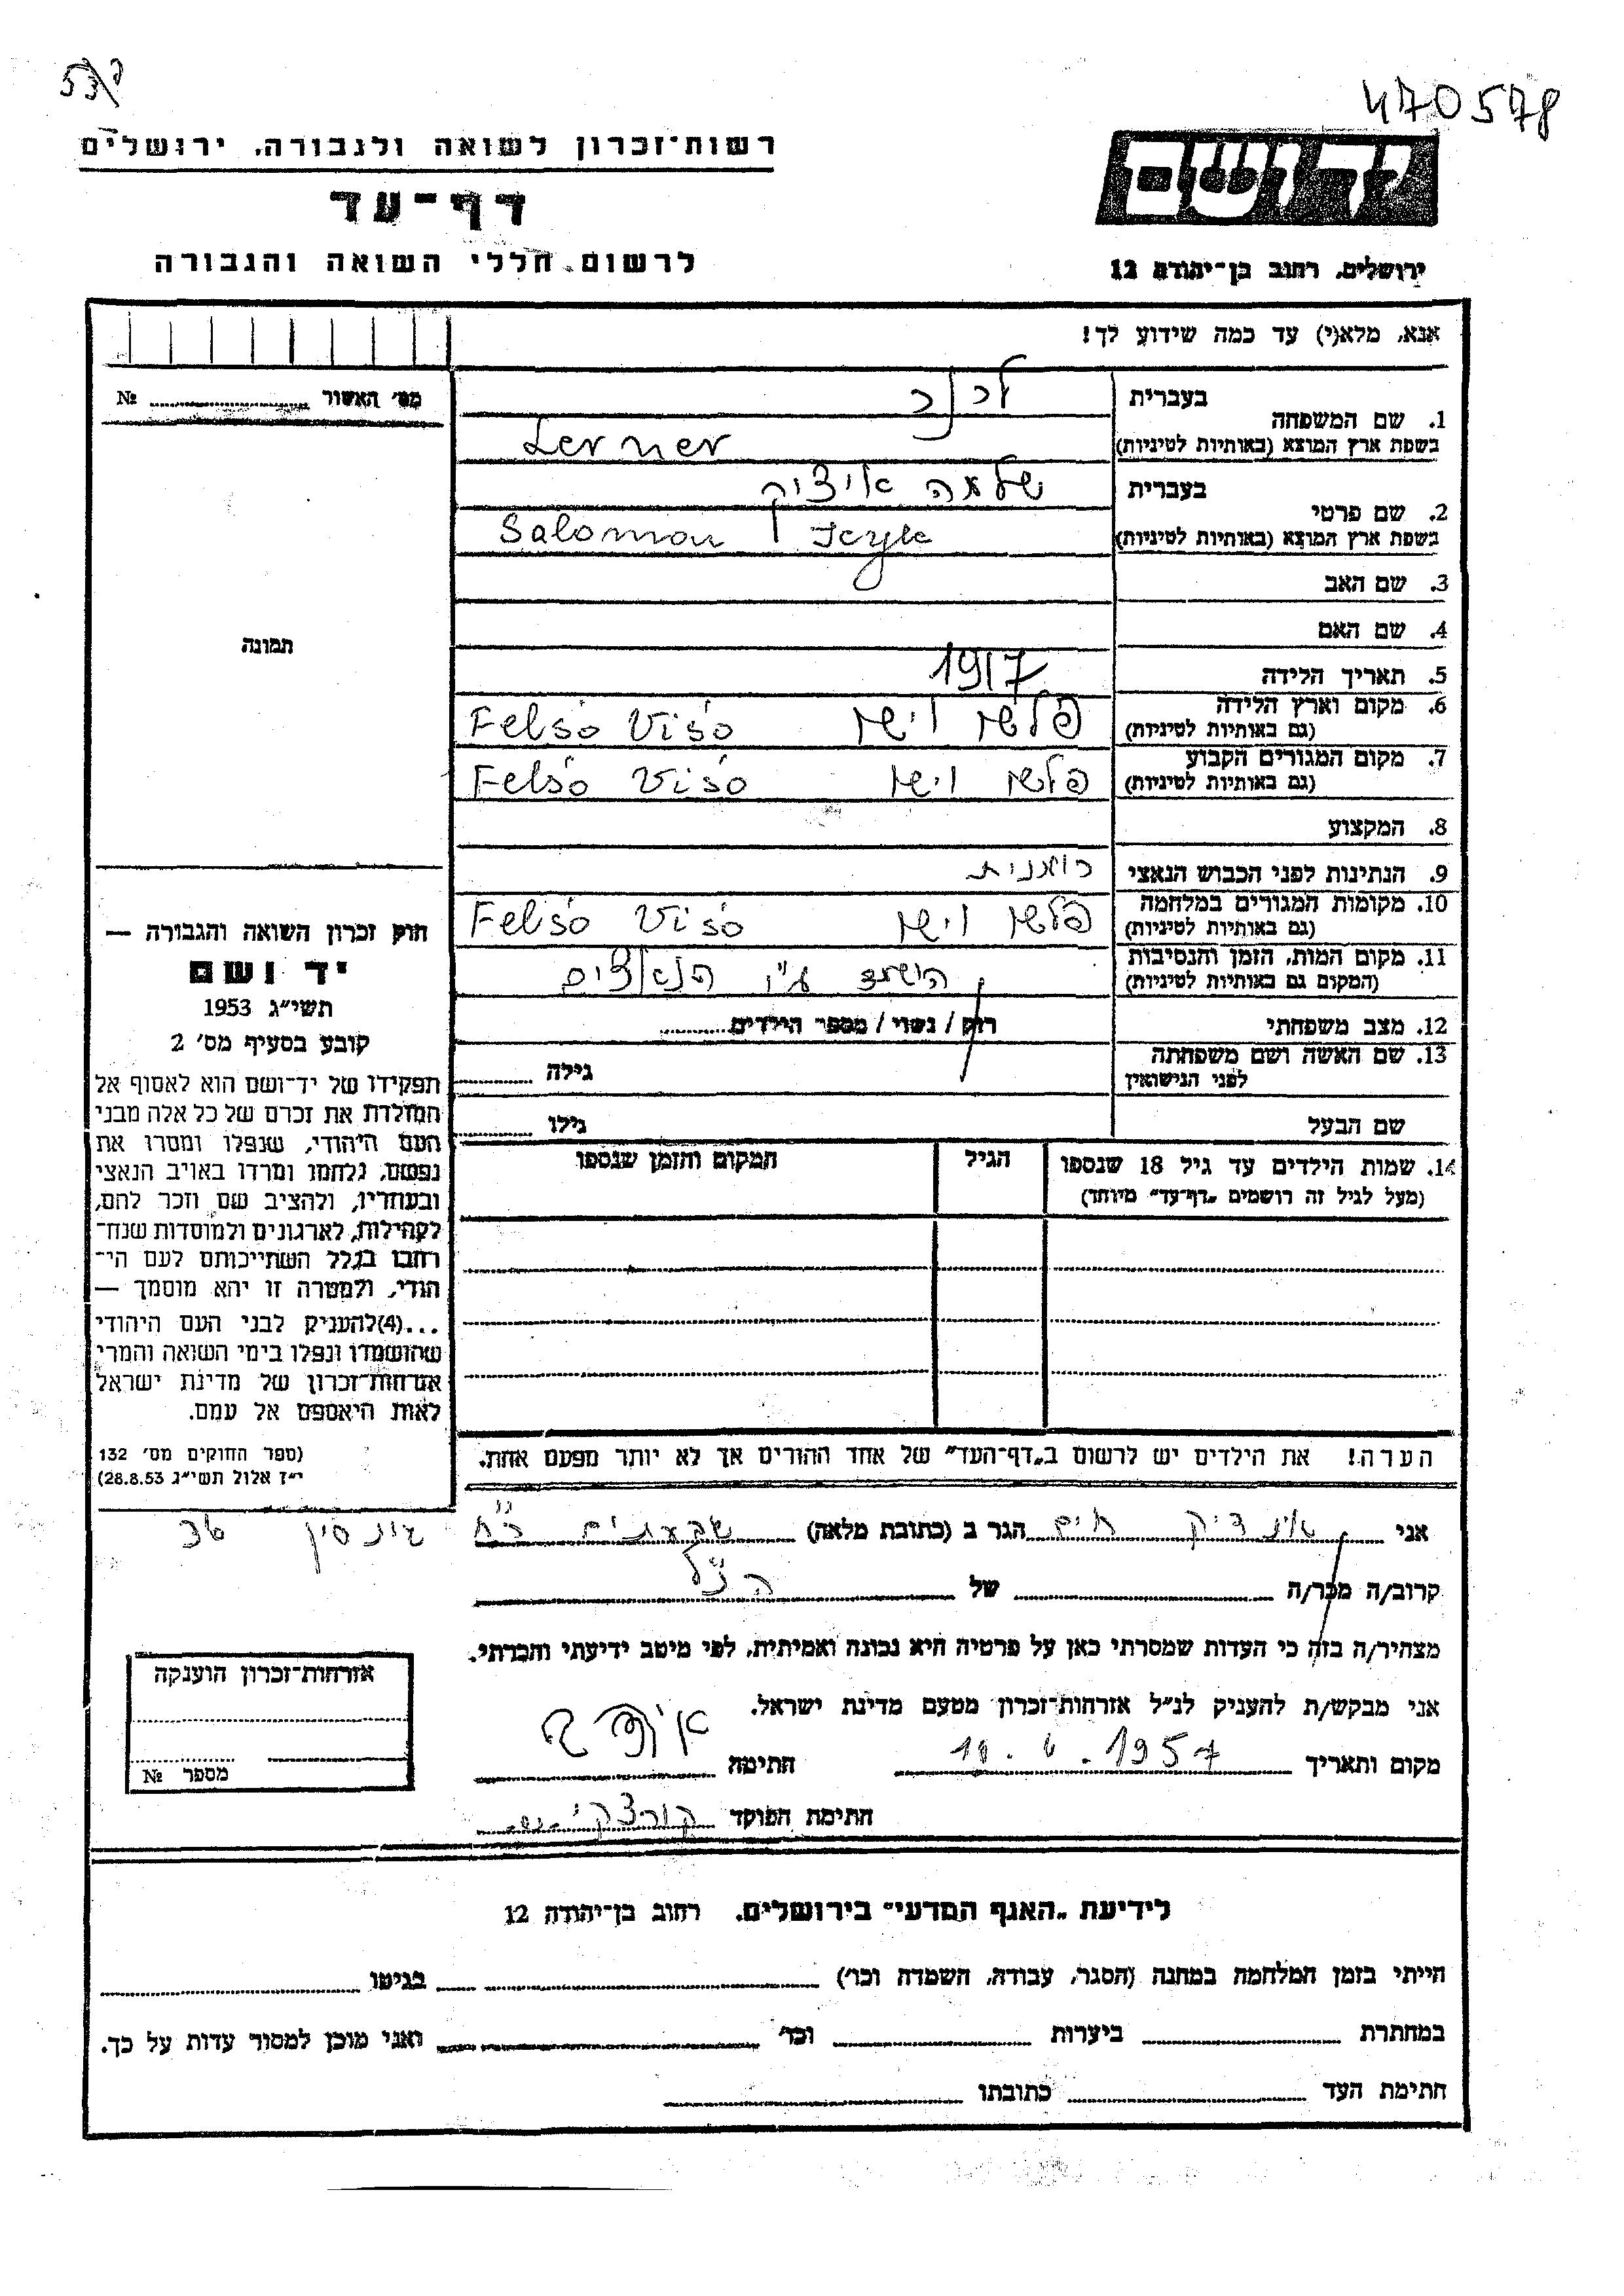 470578
רשות־זכרון לשואה ולגבורה, ירושלים
דף־עד
לרשום חללי השואה והגבורה
יד ושם
ירושלים, רחוב בן־יהודה 12
אנא, מלא(י) עד כמה שידוע לך!
מס׳ האשור № 
בעברית לרנר
1. שם המשפחה
בשפת ארץ המוצא (באותיות לטיניות) Lerner
בעברית שלמה איציק
2. שם פרטי
בשפת ארץ המוצא (באותיות לטיניות) Salomon Icyk
3. שם האב
4. שם האם
5. תאריך הלידה 1917
6. מקום וארץ הלידה פלשו וישו Felsó Visó
(גם באותיות לטיניות)
7. מקום המגורים הקבוע פלשו וישו Felsó Visó
(גם באותיות לטיניות)
8. המקצוע
9. הנתינות לפני הכבוש הנאצי רומנית
10. מקומות המגורים במלחמה פלשו וישו Felsó Visó
(גם באותיות לטיניות)
11. מקום המות, הזמן והנסיבות הושמד ע״י הנאצים
(המקום גם באותיות לטיניות)
12. מצב משפחתי רוק / נשוי / מספר הילדים
13. שם האשה ושם משפחתה
לפני הנישואין גילה
שם הבעל גילו
14. שמות הילדים עד גיל 18 שנספו הגיל המקום והזמן שנספו
(מעל לגיל זה רושמים „דף־עד״ מיוחד)
הערה! את הילדים יש לרשום ב„דף־העד״ של אחד ההורים אך לא יותר מפעם אחת.
תמונה
חוק זכרון השואה והגבורה —
יד ושם
תשי״ג 1953
קובע בסעיף מס׳ 2
תפקידו של יד־ושם הוא לאסוף אל
המולדת את זכרם של כל אלה מבני
העם היהודי, שנפלו ומסרו את
נפשם, נלחמו ומרדו באויב הנאצי
ובעוזריו, ולהציב שם וזכר להם,
לקהילות, לארגונים ולמוסדות שנח־
רחבו בגלל השתייכותם לעם הי־
הודי, ולמטרה זו יהא מוסמך —
...(4)להעניק לבני העם היהודי
שהושמדו ונפלו בימי השואה והמרי
אזרחות־זכרון של מדינת ישראל
לאות היאספם אל עמם.
(ספר החוקים מס׳ 132
י״ז אלול תשי״ג 28.8.53)
אני חיים הגר ב (כתובת מלאה) גבעתיים
קרוב/ה מכר/ה של הנ״ל
מצהיר/ה בזה כי העדות שמסרתי כאן על פרטיה היא נכונה ואמיתית, לפי מיטב ידיעתי והכרתי.
אני מבקש/ת להעניק לנ״ל אזרחות־זכרון מטעם מדינת ישראל.
מקום ותאריך 1957 חתימה
חתימת הפוקד
אזרחות־זכרון הוענקה
מספר №
לידיעת „האגף המדעי״ בירושלים, רחוב בן־יהודה 12
הייתי בזמן המלחמה במחנה (הסגר, עבודה, השמדה וכו׳) בגיטו
במחתרת ביערות וכו׳ ואני מוכן למסור עדות על כך.
חתימת העד כתובתו